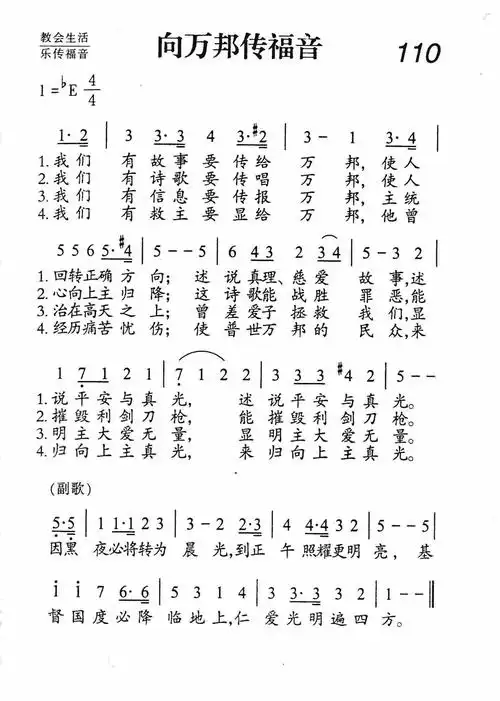 教会生活
乐传福音
向万邦传福音
110
1=♭E 4/4
1· 2 | 3 3· 3 4 3· #2 | 3 - 1 3· 4 |
1.我们 有故事要传给 万 邦，使人
2.我们 有诗歌要传唱 万 邦，使人
3.我们 有信息要传报 万 邦，主统
4.我们 有救主要显给 万 邦，他曾
5 5 6 5· #4 | 5 - - 5 | 6 4 3 2 (3 4) | 5 - - 2 |
1.回转正确方向；述说真理、慈爱故事，述
2.心向上主归降；这诗歌能战胜罪恶，能
3.治在高天之上；曾差爱子拯救我们，显
4.经历痛苦忧伤；使普世万邦的民众，来
1 7 1 2 1 | (7 1 2) 2 | 3 3 3 #4 2 | 5 - - |
1.说平安与真光，述说平安与真光。
2.摧毁利剑刀枪，能摧毁利剑刀枪。
3.明主大爱无量，显明主大爱无量。
4.归向上主真光，来归向上主真光。
(副歌)
5· 5 | 1 1· 1 2 3 | 3 - 2 2· 3 | 4 4· 4 5 6 | 5 - - 5 |
因黑 夜必将转为 晨光，到正 午照耀更明 亮，基
i i 7 6· 6 | 5 1 2 3 4 | 3 3· 3 2 2 | 1 - - ‖
督国度必降 临地上，仁 爱光明遍四 方。